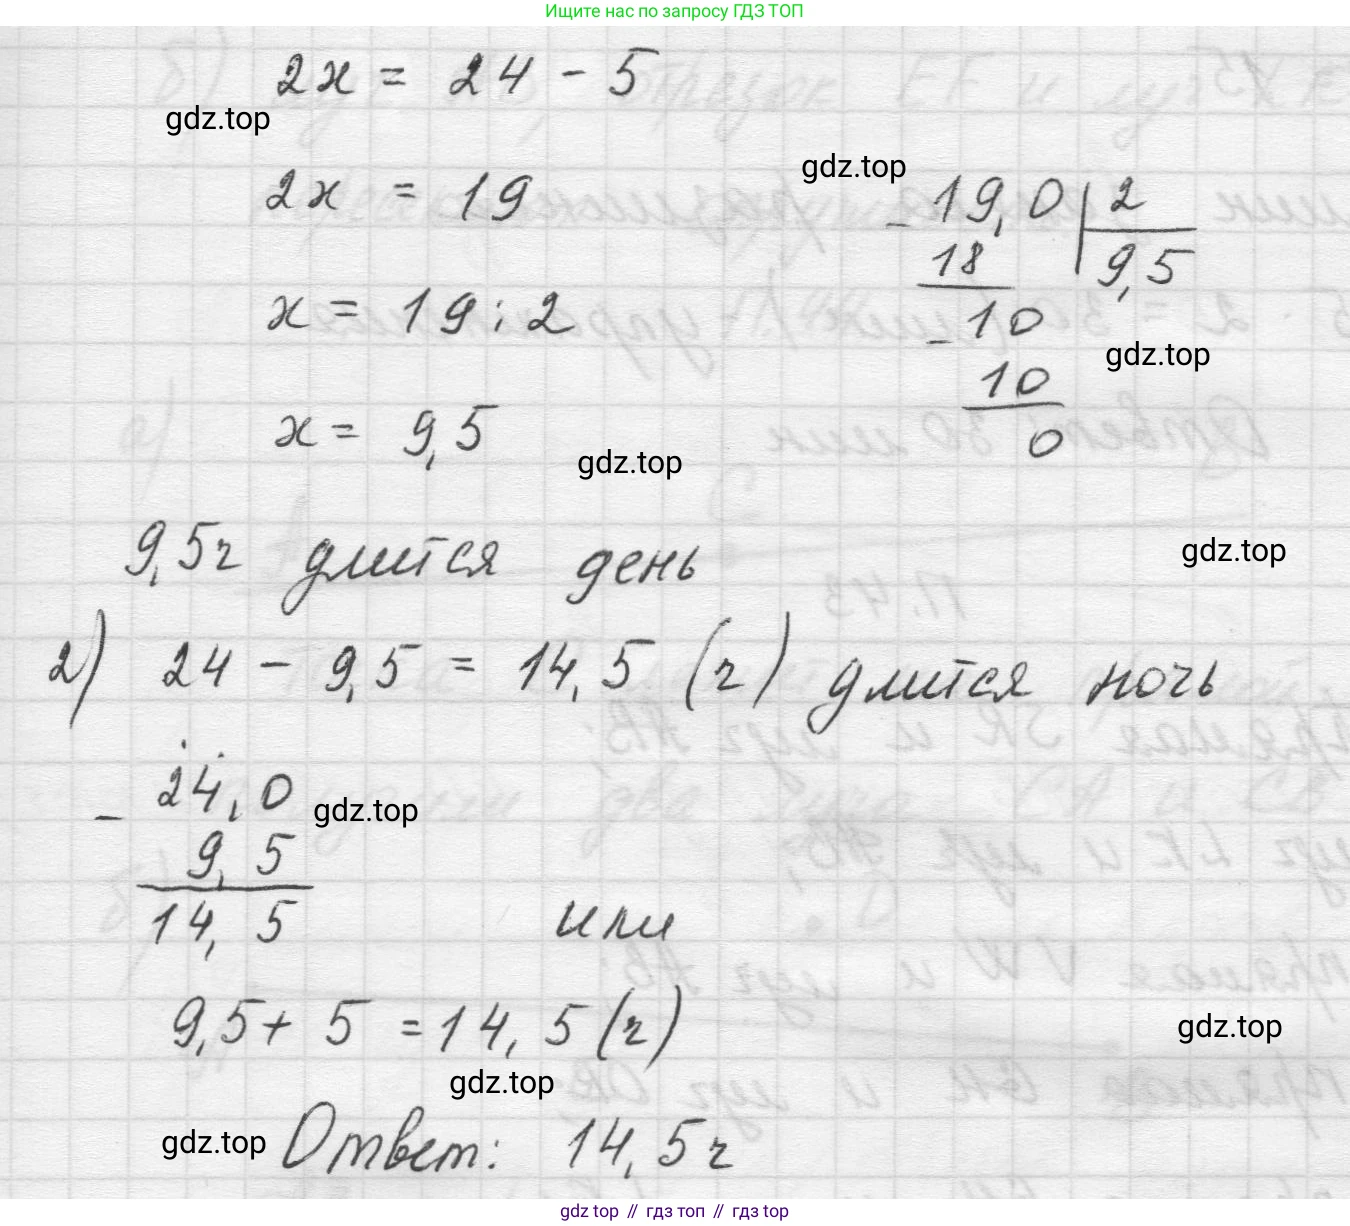 Ищите нас по запросу ГДЗ ТОП
2x = 24 - 5
gdz.top
2x = 19
gdz.top
- 19,0 | 2
18 9,5
x = 19 : 2
- 10
gdz.top
10
0
x = 9,5
gdz.top
9,5 ч длится день
gdz.top
2) 24 - 9,5 = 14,5 (ч) длится ночь
- 24,0
gdz.top
9,5
14,5
или
9,5 + 5 = 14,5 (ч)
gdz.top
gdz.top
gdz.top
Ответ: 14,5 ч
gdz top // гдз топ // гдз top